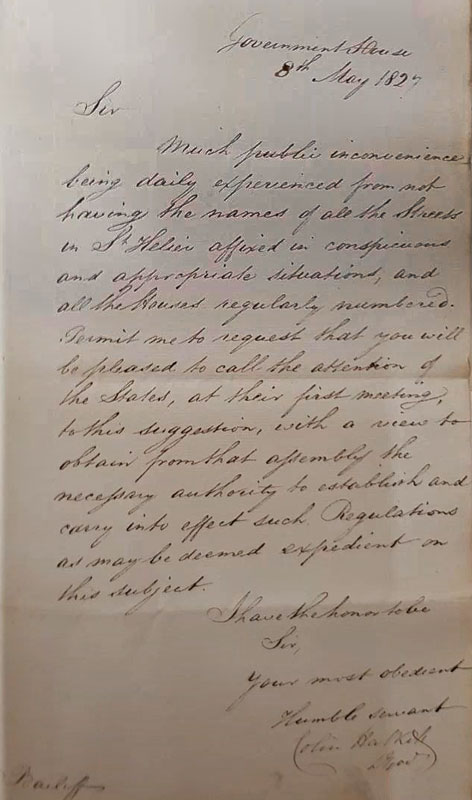 Government House
8th May 1827
Sir
Much public inconvenience
being daily experienced from not
having the names of all the Streets
in St Helier affixed in conspicuous
and appropriate situations, and
all the Houses regularly numbered.
Permit me to request that you will
be pleased to call the attention of
the States, at their first meeting,
to this suggestion, with a view to
obtain from that assembly the
necessary authority to establish and
carry into effect such Regulations
as may be deemed expedient on
this subject.
I have the honor to be
Sir,
Your most obedient
Humble servant
Colin Halkett
Bailiff